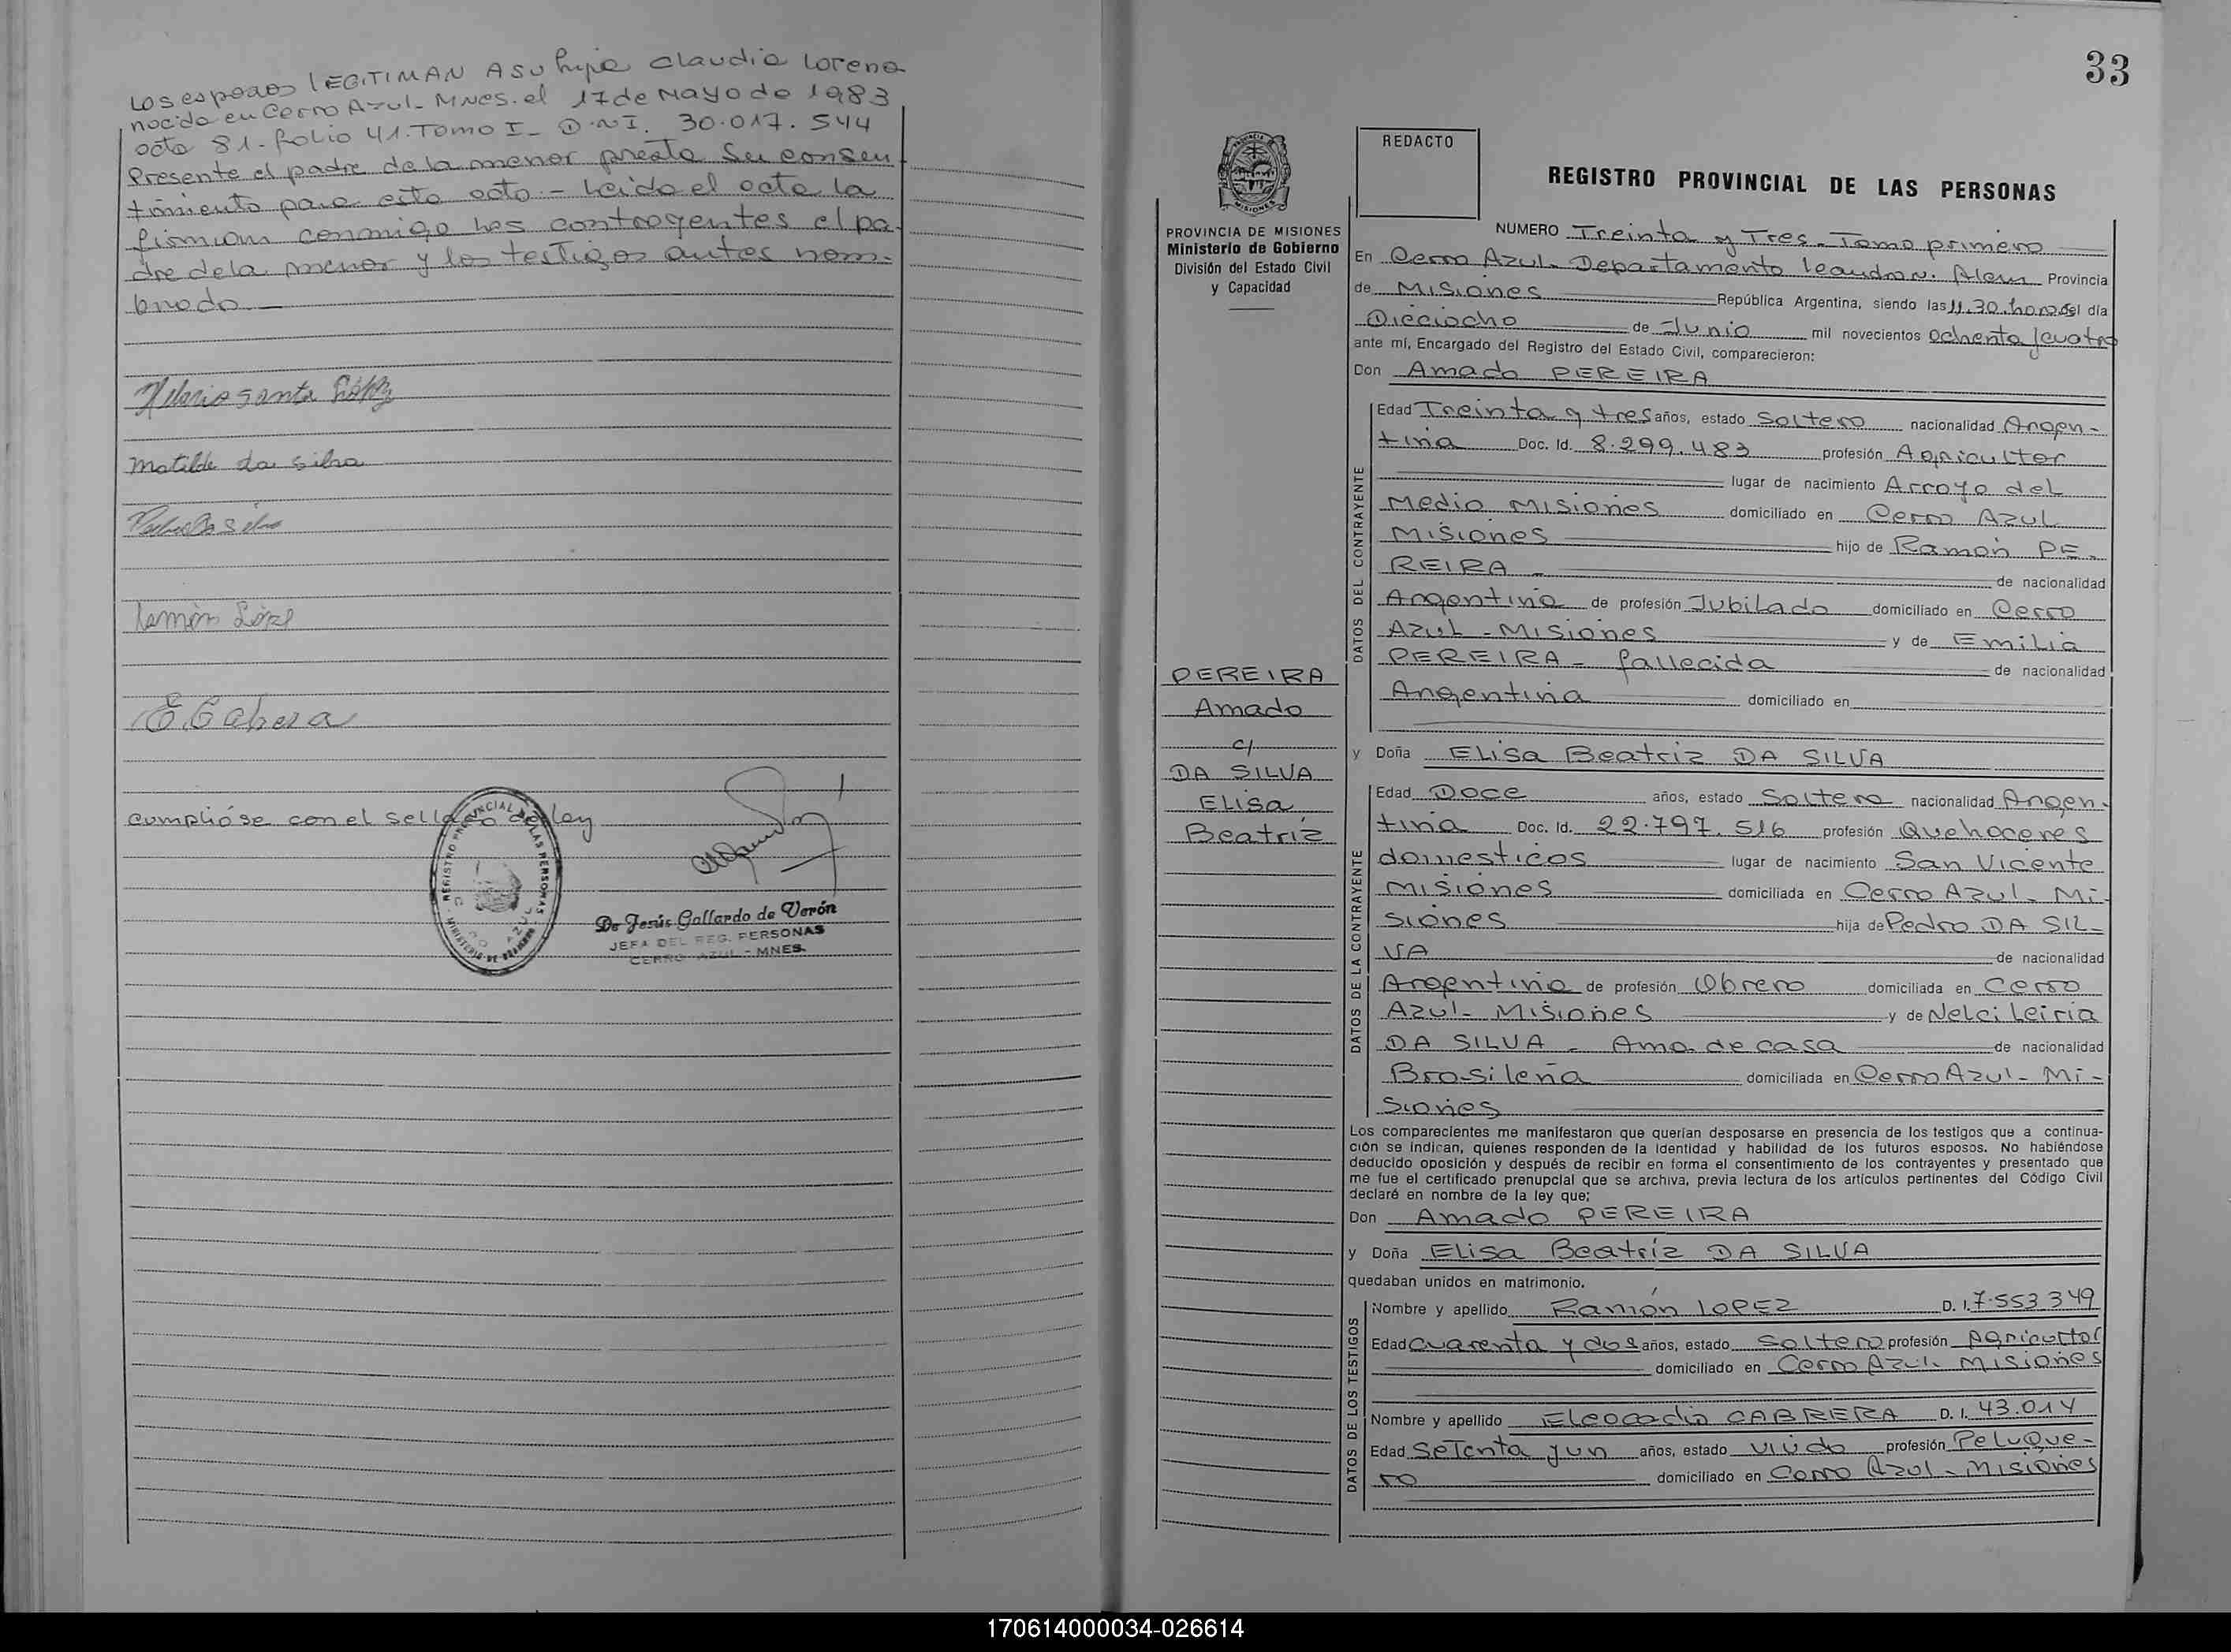 Los esposos LEGITIMAN A SU hija Claudia Lorena
nacida en Cerro Azul - Mnes. el 17 de Mayo de 1983
acta 81 - folio 41. Tomo I - D.N.I. 30.017.544
Presente el padre de la menor presta su consen
timiento para este acto - Leida el acta la
firman conmigo los contrayentes el pa-
dre de la menor y los testigos antes nom-
brado
Matilde da Silva
Ramón López
E. Cabrera
cumplióse con el sellado de ley
REGISTRO PROVINCIAL DE LAS PERSONAS
De Jesús Gallardo de Verón
JEFA DEL REG. PERSONAS
CERRO AZUL - MNES.
33
REDACTO
REGISTRO PROVINCIAL DE LAS PERSONAS
MISIONES
PROVINCIA DE MISIONES
Ministerio de Gobierno
División del Estado Civil
y Capacidad
PEREIRA
Amado
c/
DA SILVA
Elisa
Beatriz
NUMERO Treinta y Tres - Tomo primero
En Cerro Azul - Departamento Leandro N. Alem Provincia
de Misiones República Argentina, siendo las 11.30 horas del día
Dieciocho de Junio mil novecientos ochenta y cuatro
ante mí, Encargado del Registro del Estado Civil, comparecieron:
Don Amado PEREIRA
DATOS DEL CONTRAYENTE
Edad Treinta y tres años, estado Soltero nacionalidad Argen-
tina Doc. Id. 8.299.483 profesión Agricultor
lugar de nacimiento Arroyo del
Medio Misiones domiciliado en Cerro Azul
Misiones hijo de Ramón PE-
REIRA - de nacionalidad
Argentina de profesión Jubilado domiciliado en Cerro
Azul - Misiones y de Emilia
PEREIRA - fallecida de nacionalidad
Argentina domiciliado en
y Doña Elisa Beatriz DA SILVA
DATOS DE LA CONTRAYENTE
Edad Doce años, estado Soltera nacionalidad Argen-
tina Doc. Id. 22.797.516 profesión Quehaceres
domesticos lugar de nacimiento San Vicente
Misiones domiciliada en Cerro Azul - Mi-
siones hija de Pedro DA SIL-
VA de nacionalidad
Argentina de profesión Obrero domiciliada en Cerro
Azul - Misiones y de Nelci Leiria
DA SILVA - Ama de casa de nacionalidad
Brasileña domiciliada en Cerro Azul - Mi-
siones
Los comparecientes me manifestaron que querían desposarse en presencia de los testigos que a continua-
ción se indican, quienes responden de la identidad y habilidad de los futuros esposos. No habiéndose
deducido oposición y después de recibir en forma el consentimiento de los contrayentes y presentado que
me fue el certificado prenupcial que se archiva, previa lectura de los artículos pertinentes del Código Civil
declaré en nombre de la ley que;
Don Amado PEREIRA
y Doña Elisa Beatriz DA SILVA
quedaban unidos en matrimonio.
DATOS DE LOS TESTIGOS
Nombre y apellido Ramón LOPEZ D. I. 7.553.349
Edad Cuarenta y dos años, estado Soltero profesión Agricultor
domiciliado en Cerro Azul. Misiones
Nombre y apellido Eleocadio CABRERA D. I. 43.014
Edad Setenta y un años, estado viudo profesión Peluque-
ro domiciliado en Cerro Azul - Misiones
170614000034-026614